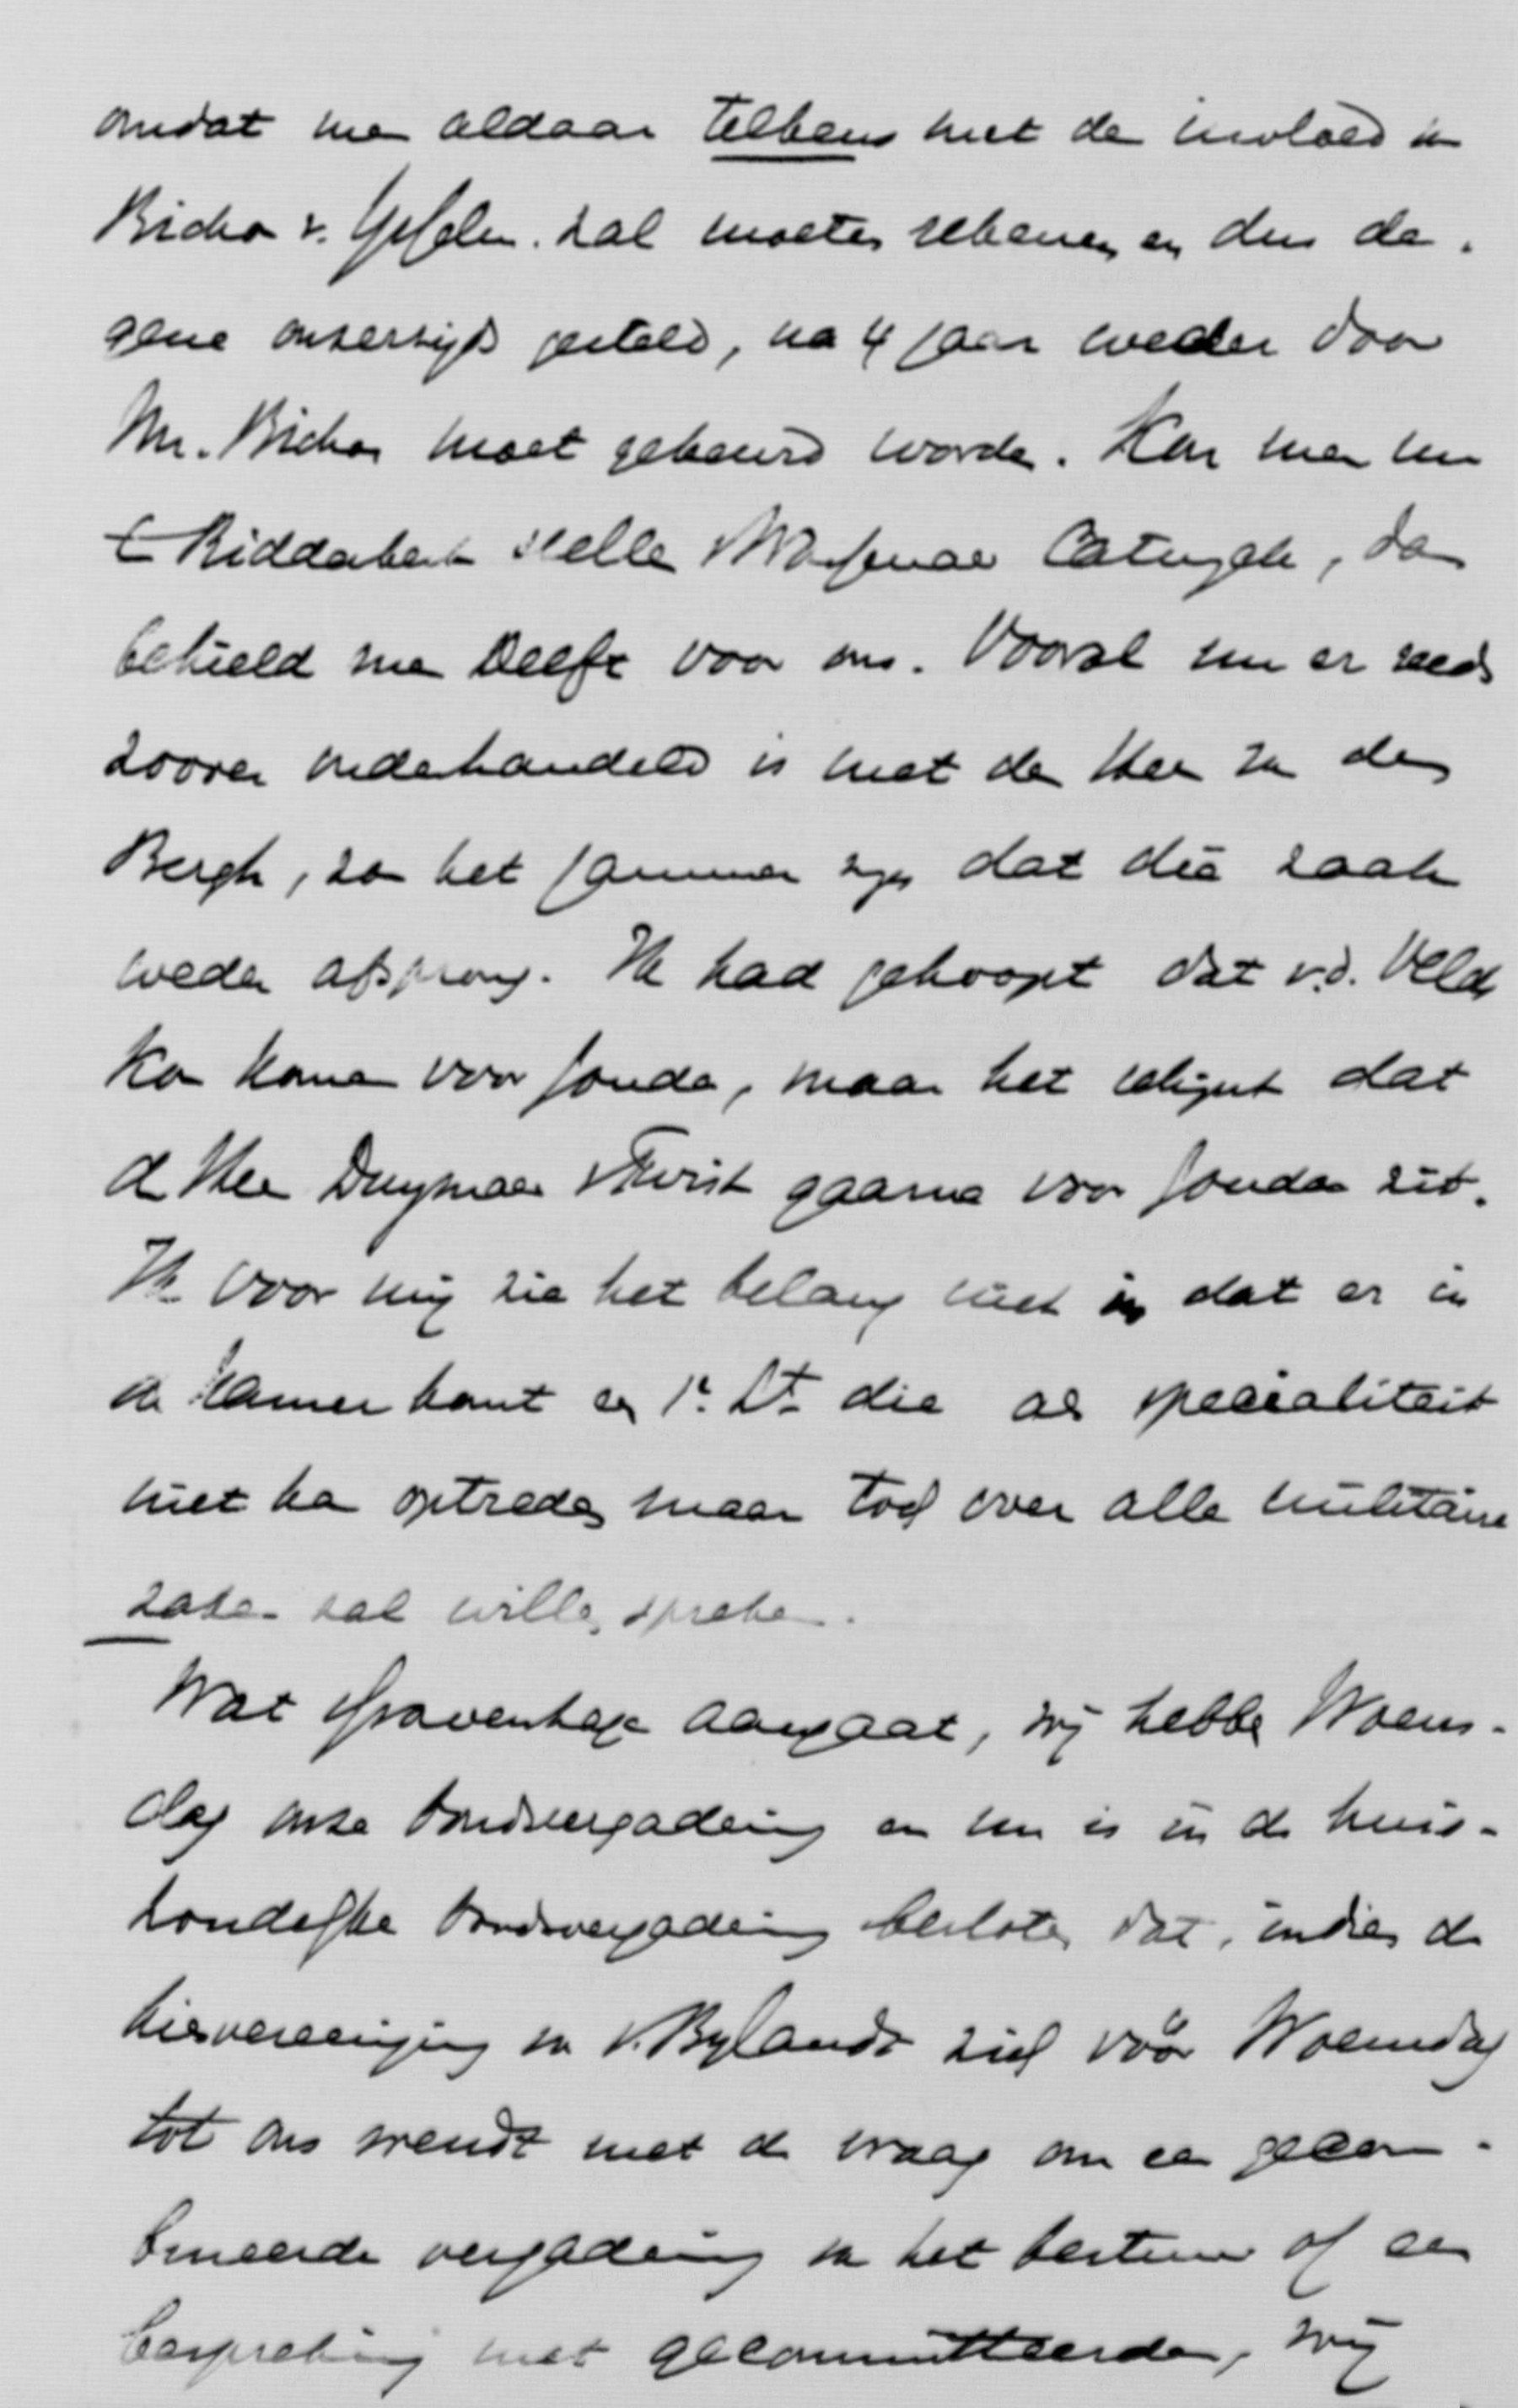 omdat men aldaar telkens met de invloed van
Bichon v. IJsselm. zal moeten rekenen en dus de-
gene onzerzijds gesteld, na 4 jaar weder door
Mr. Bichon moet gekeurd worden. Kan men nu
te Ridderkerk stellen Wassenaer Catwijck, dan
behield men Delft voor ons. Vooral nu er reeds
zoover onderhandeld is met den Heer van den
Bergh, zou het jammer zijn dat die zaak
weder afsprong. Ik had gehoopt dat v.d. Velde
kon komen voor Gouda, maar het schijnt dat
de Heer Duymaer v Twist gaarne voor Gouda zit.
Ik voor mij zie het belang niet in dat er in
de Kamer komt een 1e Lt die als specialiteit
niet kan optreden maar toch over alle militaire
zaken zal willen spreken.
Wat 's Gravenhage aangaat, wij hebben Woens-
dag onze bondsvergadering en nu is in de huis-
houdelijke bondsvergadering besloten dat, indien de
kiesvereeniging van v. Bylandt zich vóór Woensdag
tot ons wendt met de vraag om een gecom-
bineerde vergadering van het bestuur of een
bespreking met gecommitteerden, wij